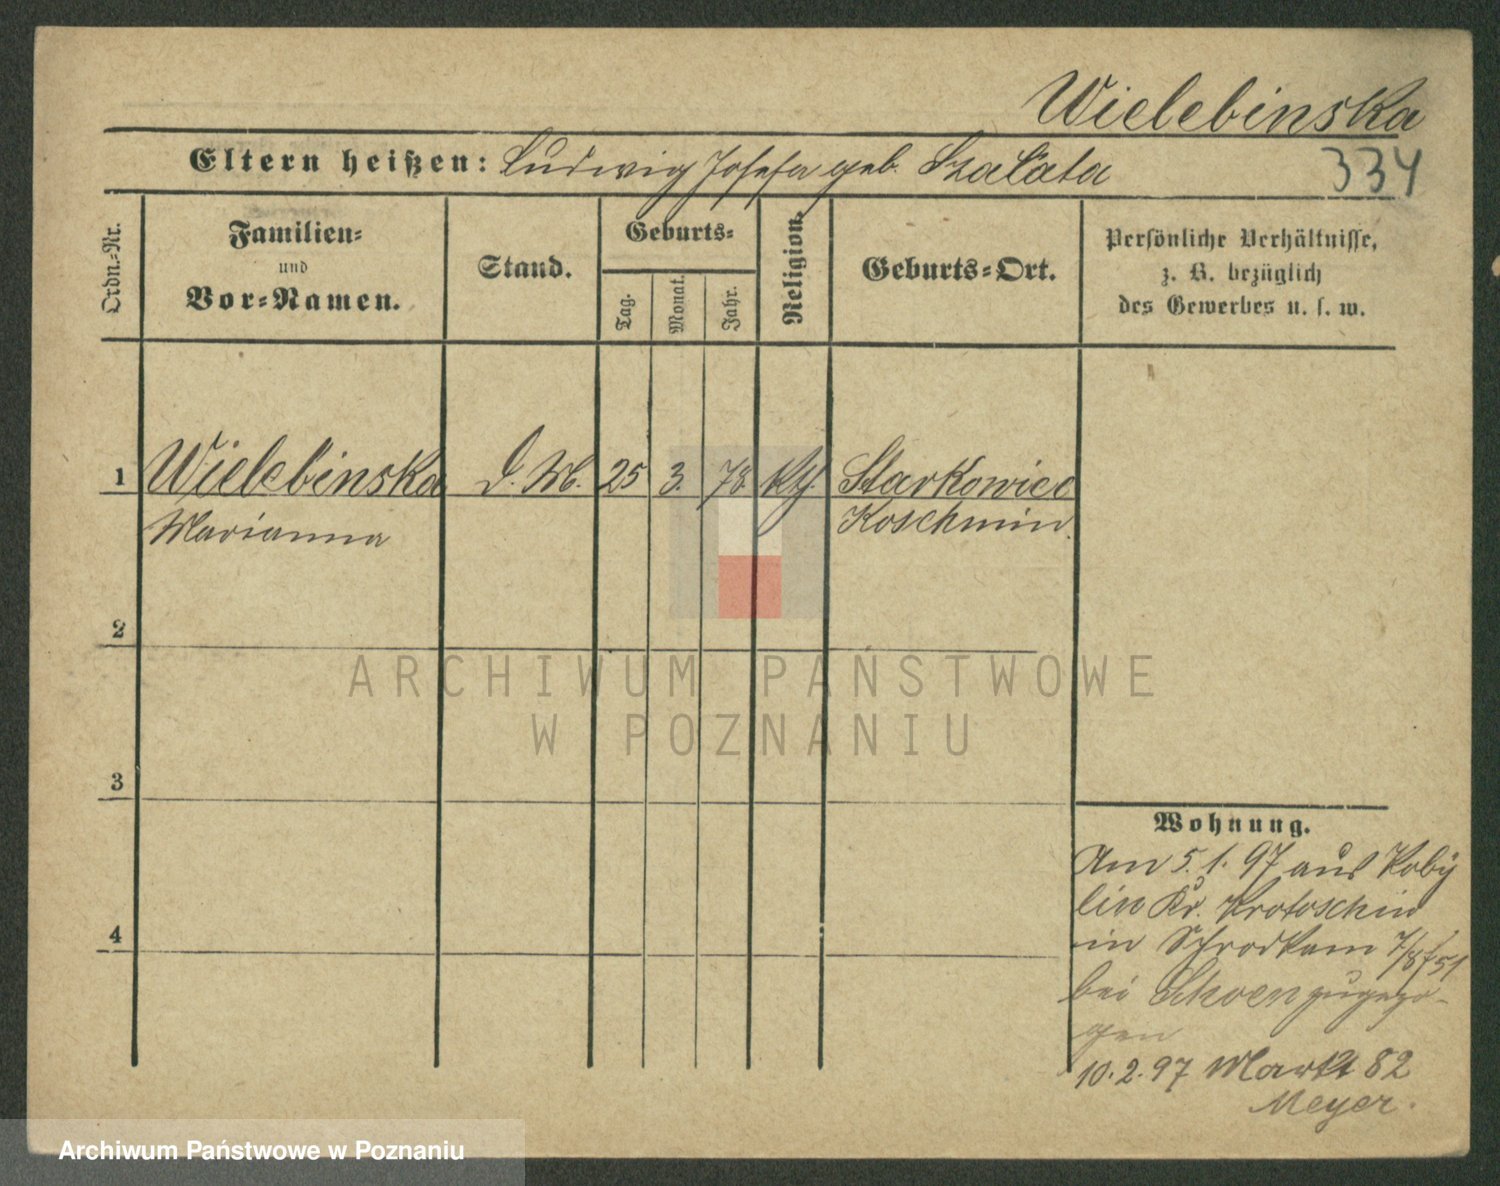 Wielebinska
Eltern heißen: Ludwig Josefa geb. Szalata
334
Ordn.-Nr.
Familien-
und
Vor-Namen.
Stand.
Geburts-
Tag.
Monat.
Jahr.
Religion.
Geburts-Ort.
Persönliche Verhältnisse,
z. B. bezüglich
des Gewerbes u. s. w.
1 Wielebinska D. M. 25 3. 78 Starkowiec
Marianna Koschmin.
2
3
4
ARCHIWUM PAŃSTWOWE
W POZNANIU
Wohnung.
Am 5. 1. 97 aus Koby
lin Kr. Krotoschin
in
bei zugezo-
gen
10.2.97 Markt 82
Meyer.
Archiwum Państwowe w Poznaniu